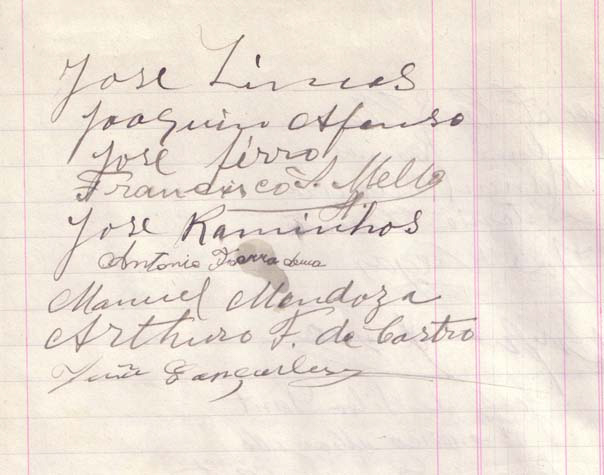 Jose Limas
Joaquino Afonso
Jose Jerro
Francisco S. Mello
Jose Raminhos
Antonio
Manuel Mendoza
Arthuro F. de Castro